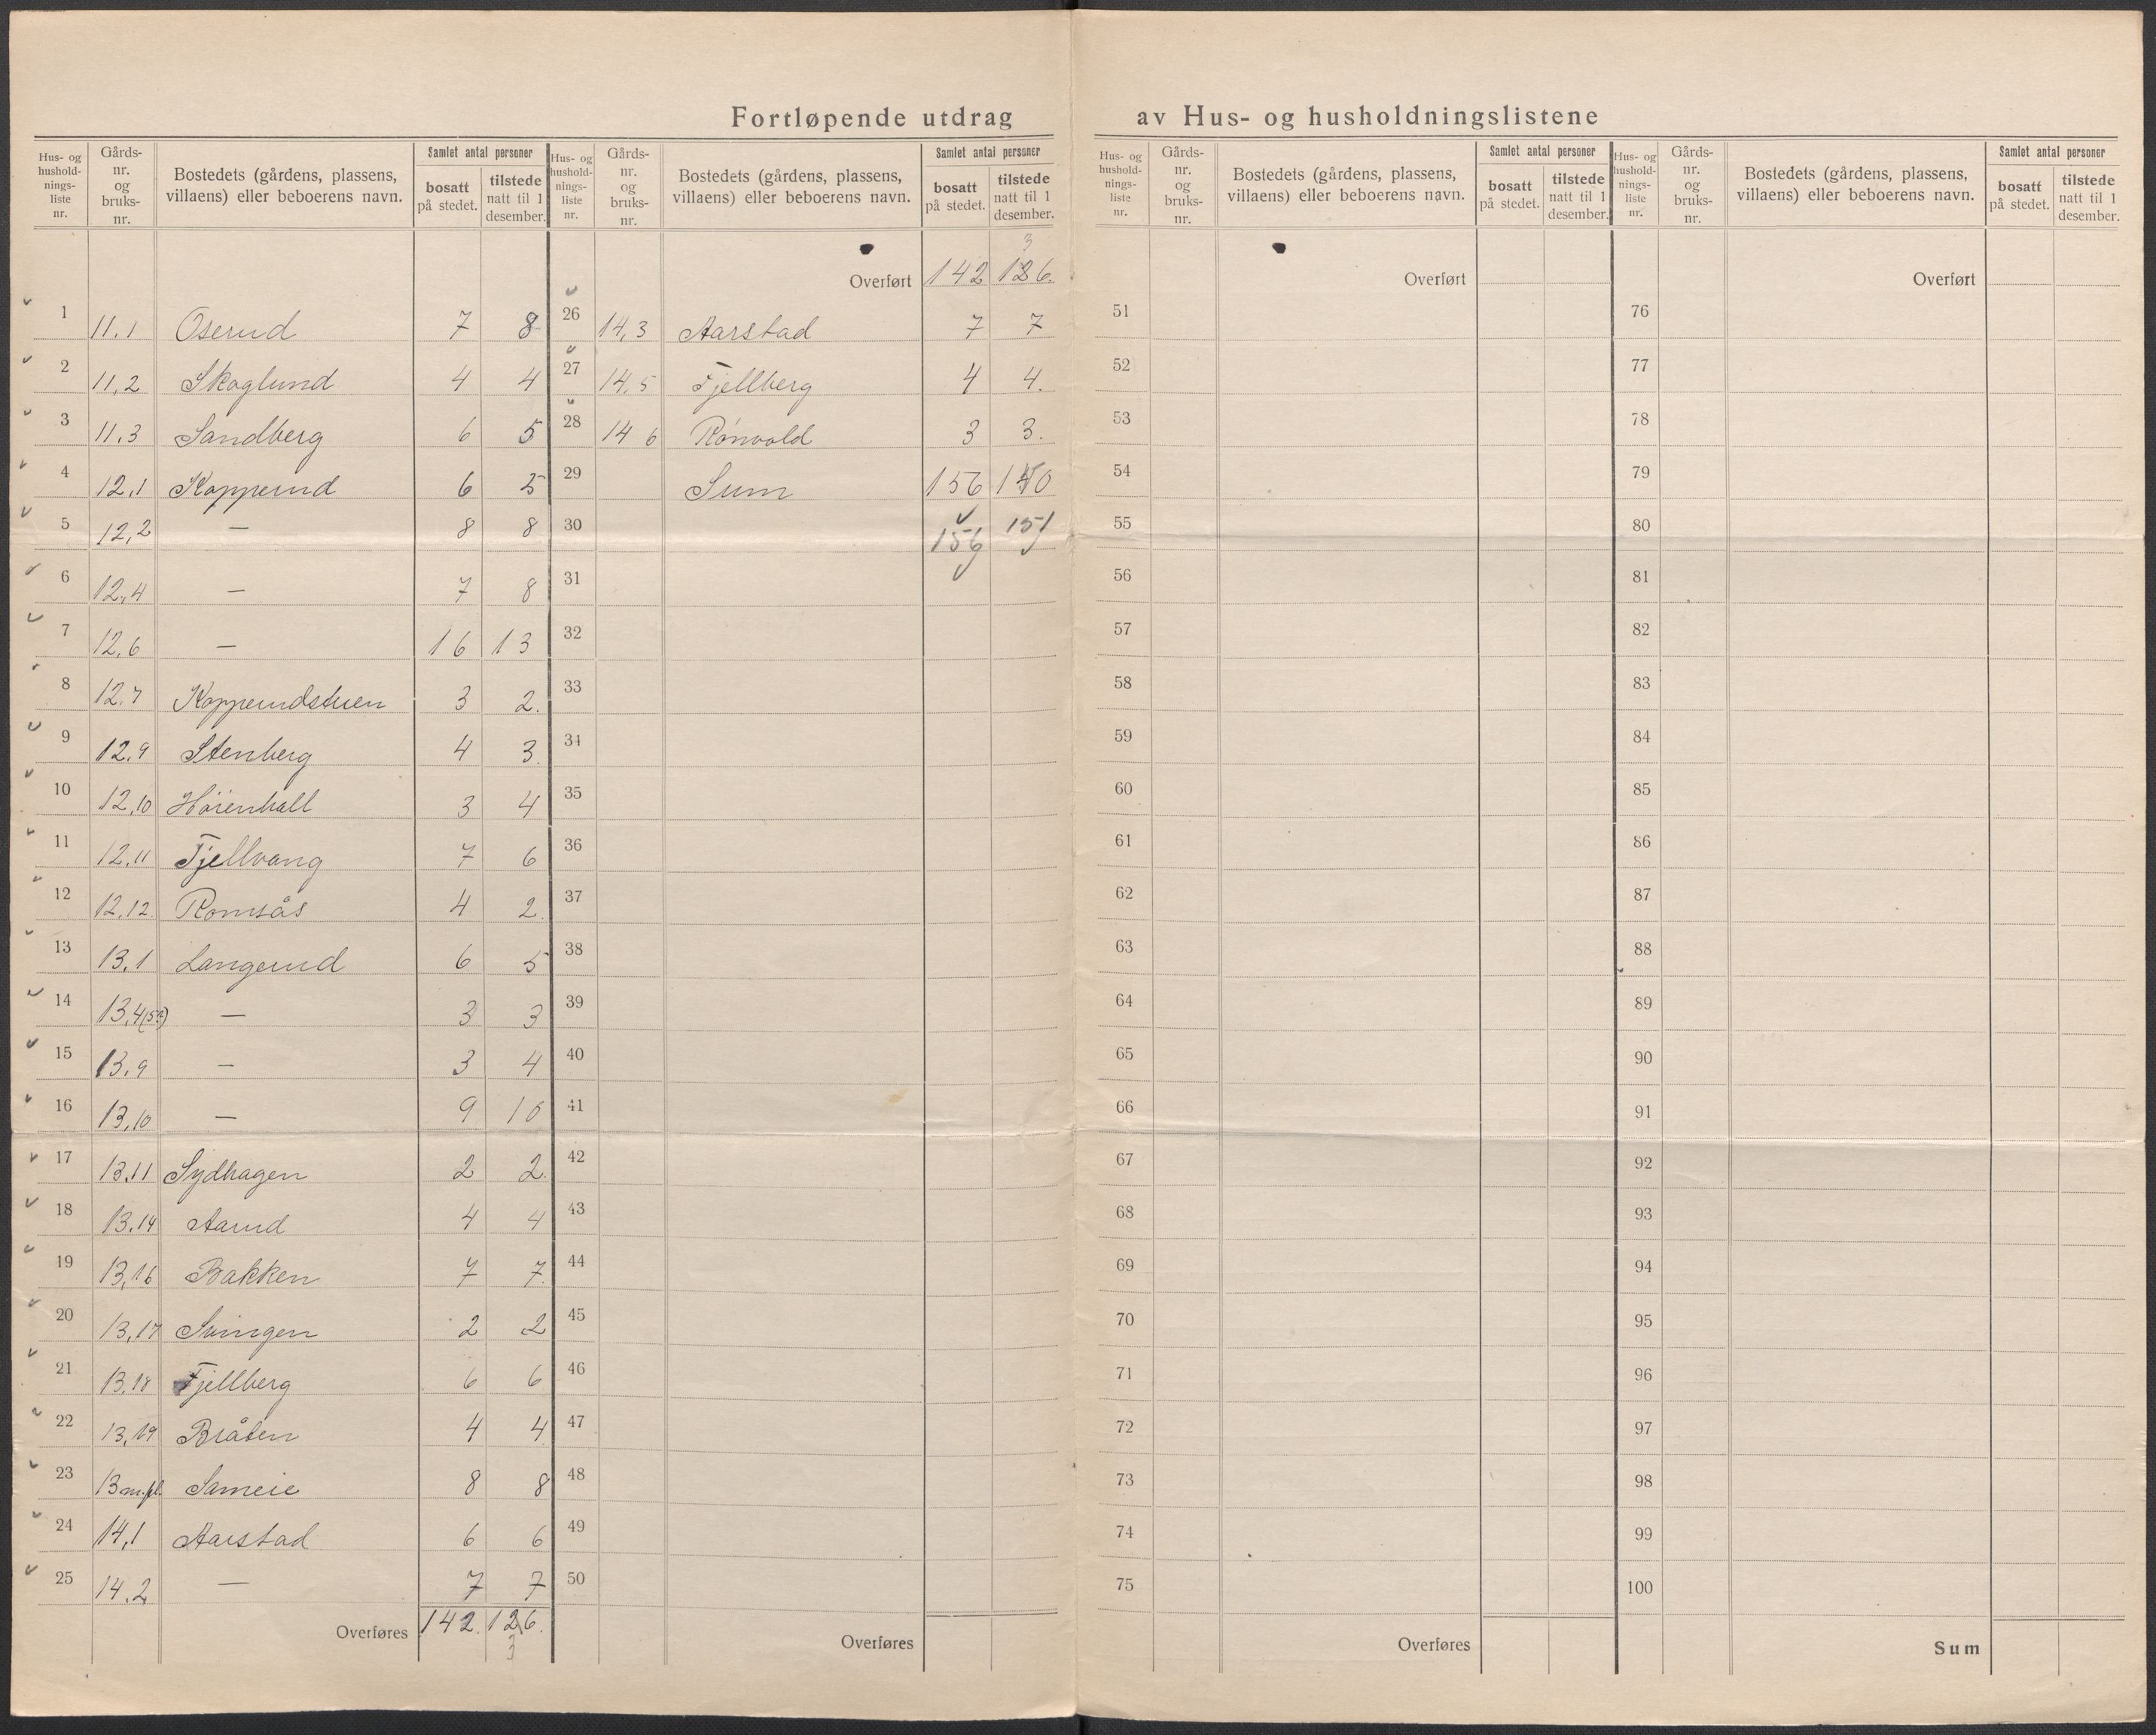 Fortløpende utdrag av Hus- og husholdningslistene
Hus- og husholdnings-liste nr. | Gårds-nr. og bruks-nr. | Bostedets (gårdens, plassens, villaens) eller beboerens navn. | Samlet antal personer | bosatt på stedet. | tilstede natt til 1 desember.
1 11,1 Oserud 7 8
2 11,2 Skoglund 4 4
3 11.3 Sandberg 6 5
4 12,1 Kopperud 6 5
5 12,2 — 8 8
6 12,4 — 7 8
7 12.6 — 16 13
8 12.7 Kopperudstuen 3 2.
9 12.9 Stenberg 4 3.
10 12,10 Höienhall 3 4
11 12.11 Fjellvang 7 6
12 12.12. Romsås 4 2.
13 13.1 Langerud 6 5
14 13,4 — 3 3
15 13.9 — 3 4
16 13,10 — 9 10
17 13.11 Sydhagen 2 2.
18 13.14 Aarud 4 4
19 13,16 Bakken 7 7.
20 13,17 Svingen 2 2
21 13.18 Fjellberg 6 6
22 13,19 Bråten 4 4
23 13 m.fl. Sameie 8 8
24 14,1 Aarstad 6 6
25 14.2 — 7 7
Overføres 142. 126.
3
Hus- og husholdnings-liste nr. | Gårds-nr. og bruks-nr. | Bostedets (gårdens, plassens, villaens) eller beboerens navn. | Samlet antal personer | bosatt på stedet. | tilstede natt til 1 desember.
3
Overført 142 126.
26 14,3 Aarstad 7 7
27 14.5 Fjellberg 4 4.
28 14 6 Rönvold 3 3.
29 Sum 156 140
30 156 151
31
32
33
34
35
36
37
38
39
40
41
42
43
44
45
46
47
48
49
50
Overføres
Hus- og husholdnings-liste nr. | Gårds-nr. og bruks-nr. | Bostedets (gårdens, plassens, villaens) eller beboerens navn. | Samlet antal personer | bosatt på stedet. | tilstede natt til 1 desember.
Overført
51
52
53
54
55
56
57
58
59
60
61
62
63
64
65
66
67
68
69
70
71
72
73
74
75
Overføres
Hus- og husholdnings-liste nr. | Gårds-nr. og bruks-nr. | Bostedets (gårdens, plassens, villaens) eller beboerens navn. | Samlet antal personer | bosatt på stedet. | tilstede natt til 1 desember.
Overført
76
77
78
79
80
81
82
83
84
85
86
87
88
89
90
91
92
93
94
95
96
97
98
99
100
Sum